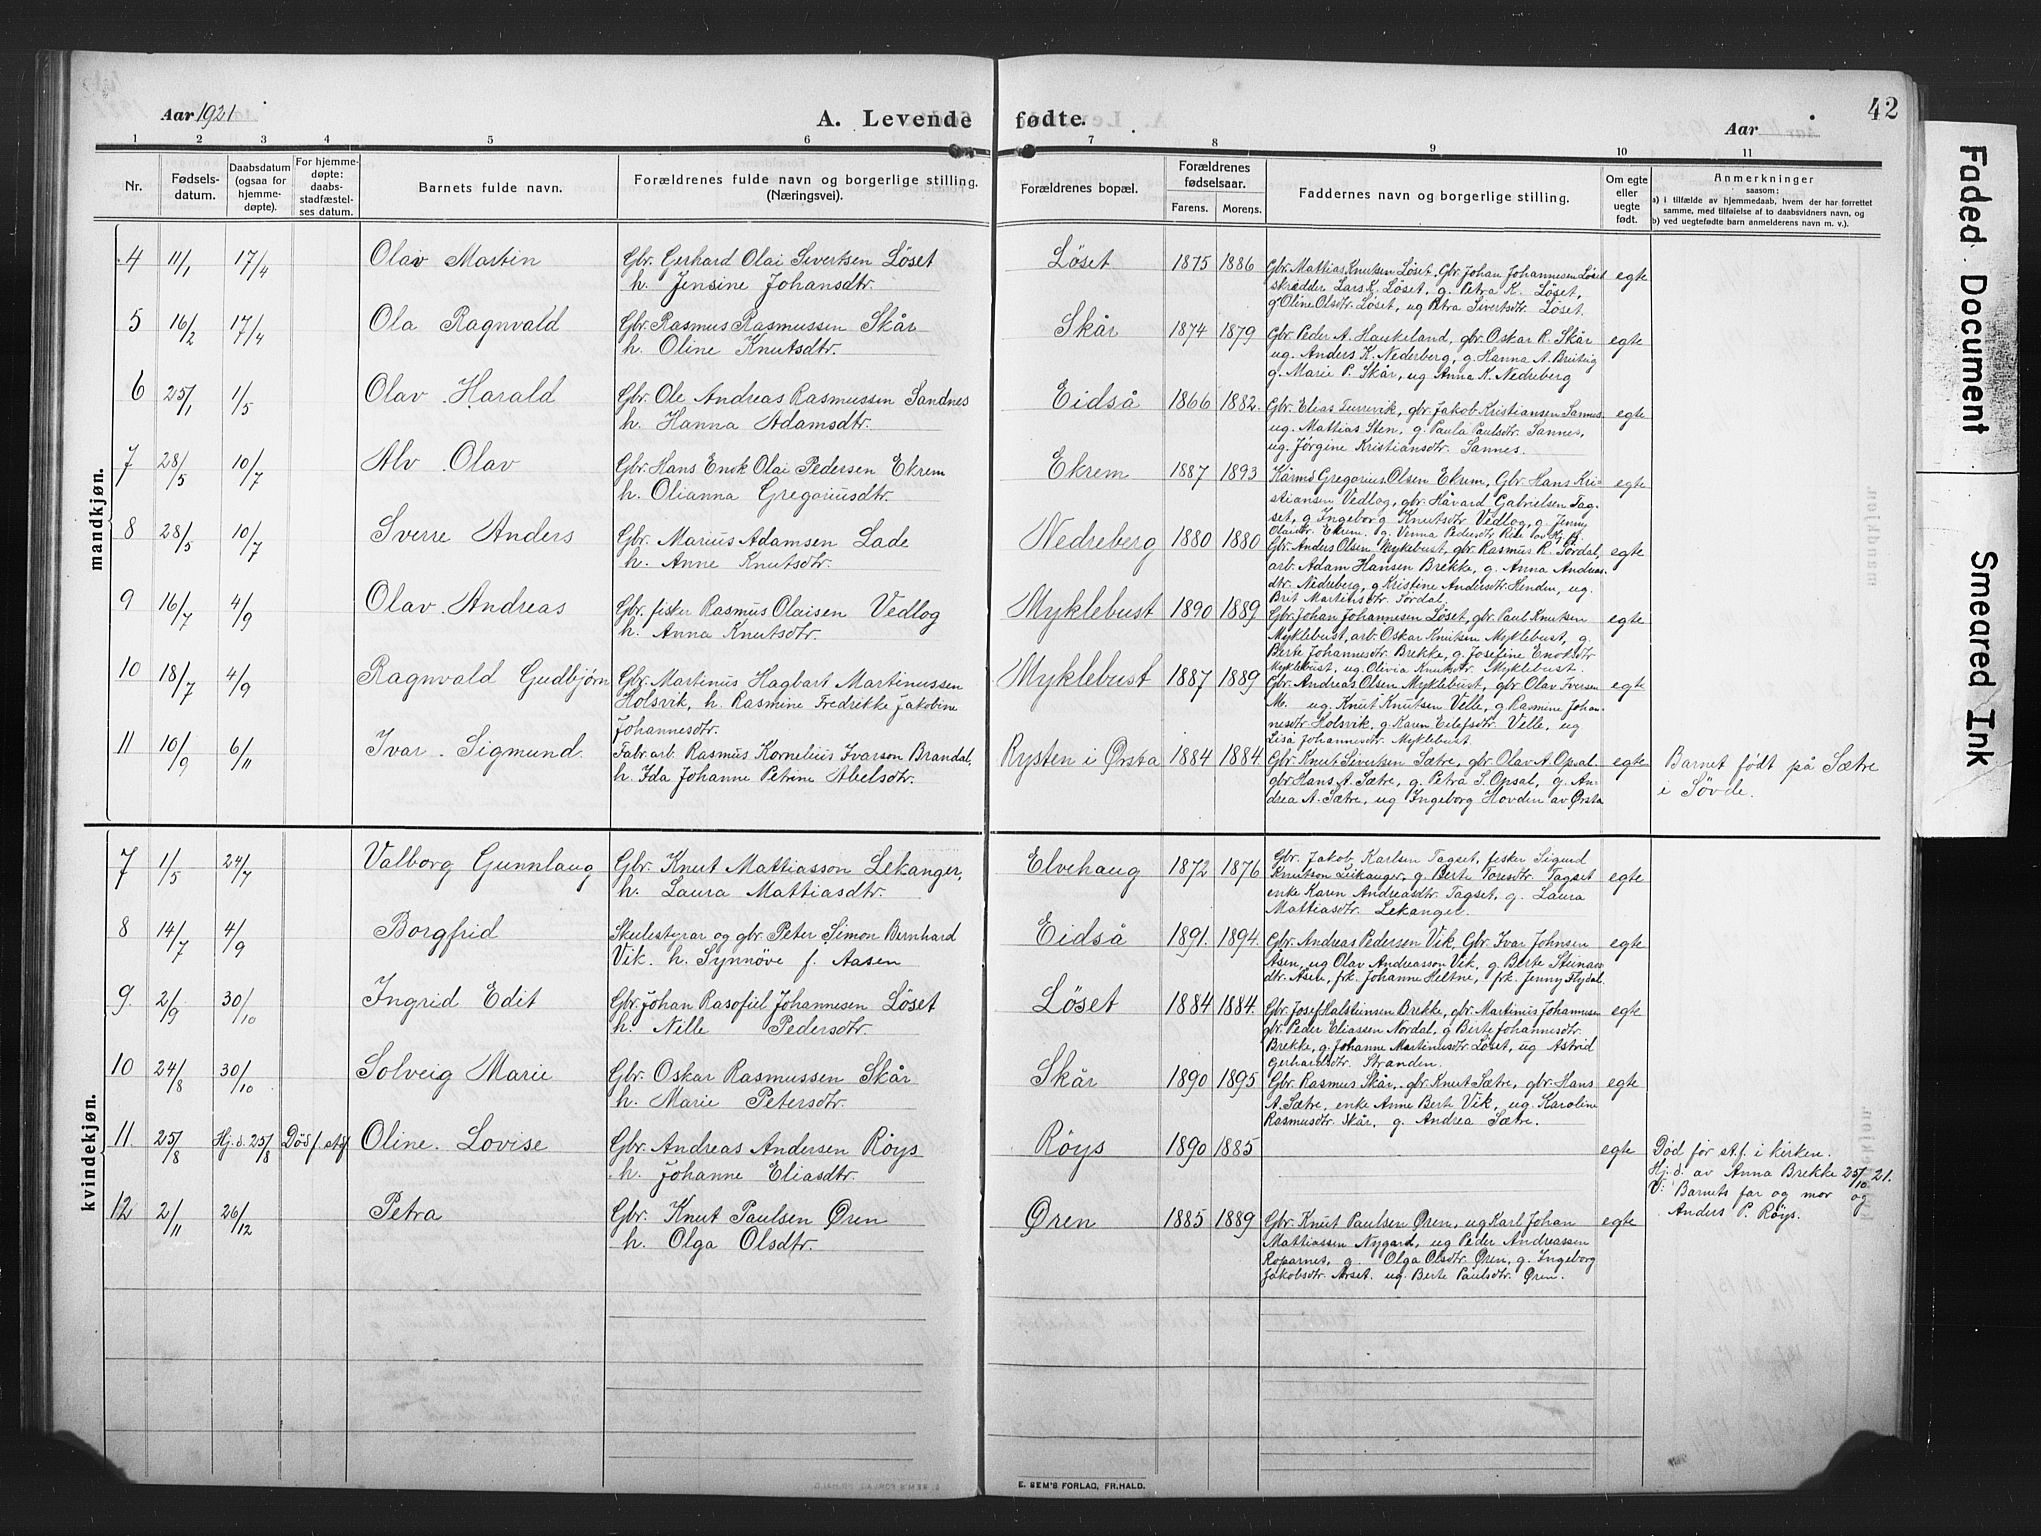 Aar 1921
A. Levende fødte.
Aar
42
1 2 3 4 5 6 7 8 9 10 11
Nr.
Fødsels-
datum.
Daabsdatum
(ogsaa for
hjemme-
døpte).
For hjemme-
døpte:
daabs-
stadfæstel-
ses datum.
Barnets fulde navn.
Forældrenes fulde navn og borgerlige stilling.
(Næringsvei).
Forældrenes bopæl.
Forældrenes
fødselsaar.
Farens. Morens.
Faddernes navn og borgerlige stilling.
Om egte
eller
uegte
født.
Anmerkninger
saasom:
a) i tilfælde av hjemmedaab, hvem der har forrettet
samme, med tilføielse af to daabsvidners navn, og
b) ved uegtefødte barn anmelderens navn m. v.).
mandkjøn.
4 11/1 17/4 Olav Martin
Gbr. Gerhard Olai Sivertsen Løset
h. Jensine Johansdtr.
Løset 1875 1886
Gbr. Mattias Knutsen Løset, Gbr. Johan Johannesen Løset
skrædder Lars K. Løset, g. Petra K. Løset,
g. Oline Olsdtr. Løset, ug Petra Sivertsdtr. Løset.
egte
5 16/2 17/4 Ola Ragnvald
Gbr. Rasmus Rasmussen Skår
h. Oline Knutsdtr.
Skår 1874 1879
Gbr. Peder A. Haukeland, gbr. Oskar R. Skår
ug. Anders K. Nederberg, g. Hanna A.
g. Marie P. Skår, ug Anna K. Nedreberg
egte
6 25/1 1/5 Olav Harald
Gbr. Ole Andreas Rasmussen Sandnes
h. Hanna Adamsdtr.
Eidså 1866 1882.
Gbr. Elias gbr. Jakob Kristiansen Sannes
ug. Mattias Sten, g. Paula Paulsdtr. Sannes,
ug. Jørgine Kristiansdtr. Sannes.
egte
7 28/5 10/7 Alv Olav
Gbr. Hans Enok Olai Pedersen Ekrem
h. Olianna Gregoriusdtr.
Ekrem 1887 1893
Kårmd Gregorius Olsen Ekrem, Gbr. Hans Kri-
stiansen Vedlog, gbr. Håvard Gabrielsen Tag-
set, g. Ingeborg Knutsdtr. Vedlog, g. Jenny
Olaidtr. Ekrem
egte
8 28/5 10/7 Sverre Anders
Gbr. Marius Adamsen Lade
h. Anne Knutsdtr.
Nedreberg 1880 1880
Gbr. Anders Olsen Myklebust, gbr. Rasmus R. Sørdal,
arb. Adam Hansen Brekke, g. Anna Andreas-
dtr. Nedreberg, g Kristine Andersdtr. Hinden, ug.
Brit Martinsdtr. Sørdal.
egte
9 16/7 4/9 Olav Andreas
Gbr. fisker Rasmus Olaisen Vedlog
h. Anna Knutsdtr.
Myklebust 1890 1889
Gbr. Johan Johannesen Løset, gbr. Paul Knutsen
Myklebust, arb. Oskar Knutsen Myklebust, g.
Berte Johannesdtr. Brekke, g. Josefine Enoksdtr
Myklebust, ug. Olivia Knutsdtr. Myklebust.
egte
10 18/7 4/9 Ragnvald Gudbjørn
Gbr. Martinus Hagbart Martinussen
Holsvik, h. Rasmine Fredrikke Jakobine
Johannesdtr.
Myklebust 1887 1889
Gbr. Andreas Olsen Myklebust, gbr Olav Iversen
M. ug Knut Knutsen Velle, g Rasmine Johan-
nesdtr Holsvik, g. Karen Eilefsdtr. Velle, ug
Lisa Johannesdtr. Myklebust.
egte
11 10/9 6/11 Ivar Sigmund.
Fabr. arb. Rasmus Kornelius Ivarson Brandal,
h. Ida Johanne Petrine Abelsdtr.
Rysten i Ørsta 1884 1884.
Gbr. Knut Sivertsen Sætre, gbr. Olav A. Opsal
gbr Hans A. Sætre, g. Petra S. Opsal, g. An-
drea A. Sætre, ug Ingeborg Hovden av Ørsta
egte
Barnet født på Sætre
i Søvde.
kvindekjøn.
7 1/5 24/7 Valborg Gunnlaug
Gbr. Knut Mattiasson Lekanger,
h. Laura Mattiasdtr.
Elvehaug 1872 1876
Gbr. Jakob Karlsen Tagset, fisker Sigurd
Knutson Leikanger, g Berte Toresdtr. Tagset
enke Karen Andreasdtr. Tagset, g. Laura
Mattiasdtr. Lekanger.
egte
8 14/7 4/9 Borgfrid
Skulestyrar og gbr. Peter Simon Bernhard
Vik. h. Synnöve f. Aasen
Eidså 1891. 1894.
Gbr. Andreas Pedersen Vik, Gbr. Ivar Johnsen
Åsen, ug Olav Andreasson Vik, g Berte Steinas-
dtr. Åsen, frk. Johanne Heltne, frk. Jenny Flydal.
egte
9 2/9 30/10 Ingrid Edit
Gbr. Johan Rasofiel Johannesen Løset
h. Nille Pedersdtr.
Løset 1884 1884.
Gbr. Josef Halsteinsen Brekke, gbr. Martinus Johannesen
gbr. Peder Eliassen Nordal, g Berte Johannesdtr.
Brekke, g. Johanne Martinusdtr. Løset, ug Astrid
Gerhardsdtr. Stranden.
egte
10 24/8 30/10 Solveig Marie
Gbr. Oskar Rasmussen Skår
h. Marie Petersdtr.
Skår 1890 1895
Gbr. Rasmus Skår, gbr. Knut Sætre, gbr. Hans
A. Sætre, enke Anne Berte Vik, ug. Karoline
Rasmusdtr. Skår, g. Andrea Sætre.
egte
11 25/8 Hj. d. 25/8 Död f. stf. Oline Lovise
Gbr. Andreas Andersen Röys
h. Johanne Eliasdtr.
Röys 1890 1885
egte
Død før st.f. i kirken.
Hj. d. av Anna Brekke 25/10 21.
V: Barnets far og mor og
Anders P. Røys.
12 2/11 26/12 Petra
Gbr. Knut Paulsen Øren
h. Olga Olsdtr.
Øren 1885 1889
Gbr. Knut Paulsen Øren, ug Karl Johan
Mattiassen Nygard, ug Peder Andreassen
Roparnes, g. Olga Olsdtr. Øren, g. Ingeborg
Jakobsdtr. Årset. ug. Berte Paulsdtr. Øren.
egte
E. SEM'S FORLAG, FR.HALD.
Faded Document
Smeared Ink